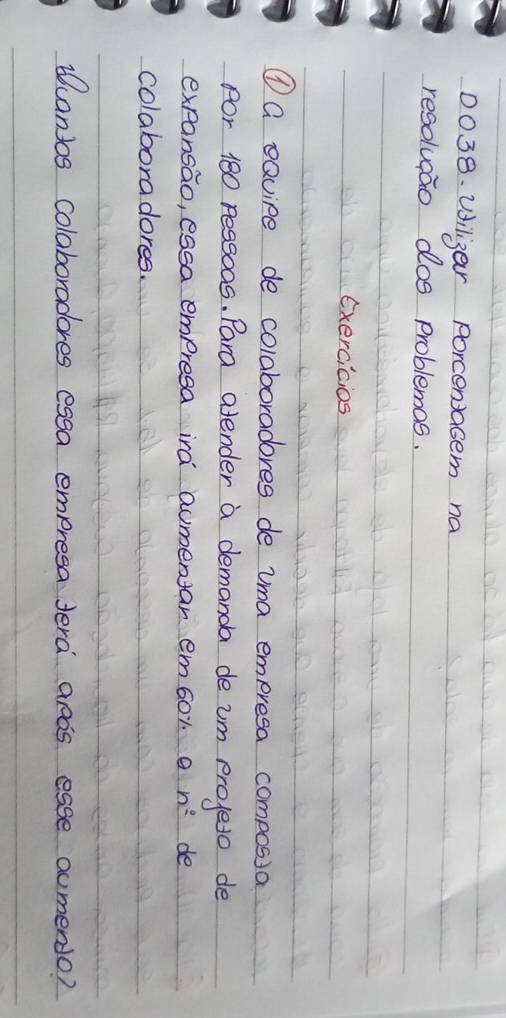 D038. Utilizar porcentagem na
resolução dos problemas.
Exercícios
① A equipe de colaboradores de uma empresa composta
por 180 pessoas. Para atender à demanda de um projeto de
expansão, essa empresa irá aumentar em 60% o nº de
colaboradores.
Quantos colaboradores essa empresa terá após esse aumento?